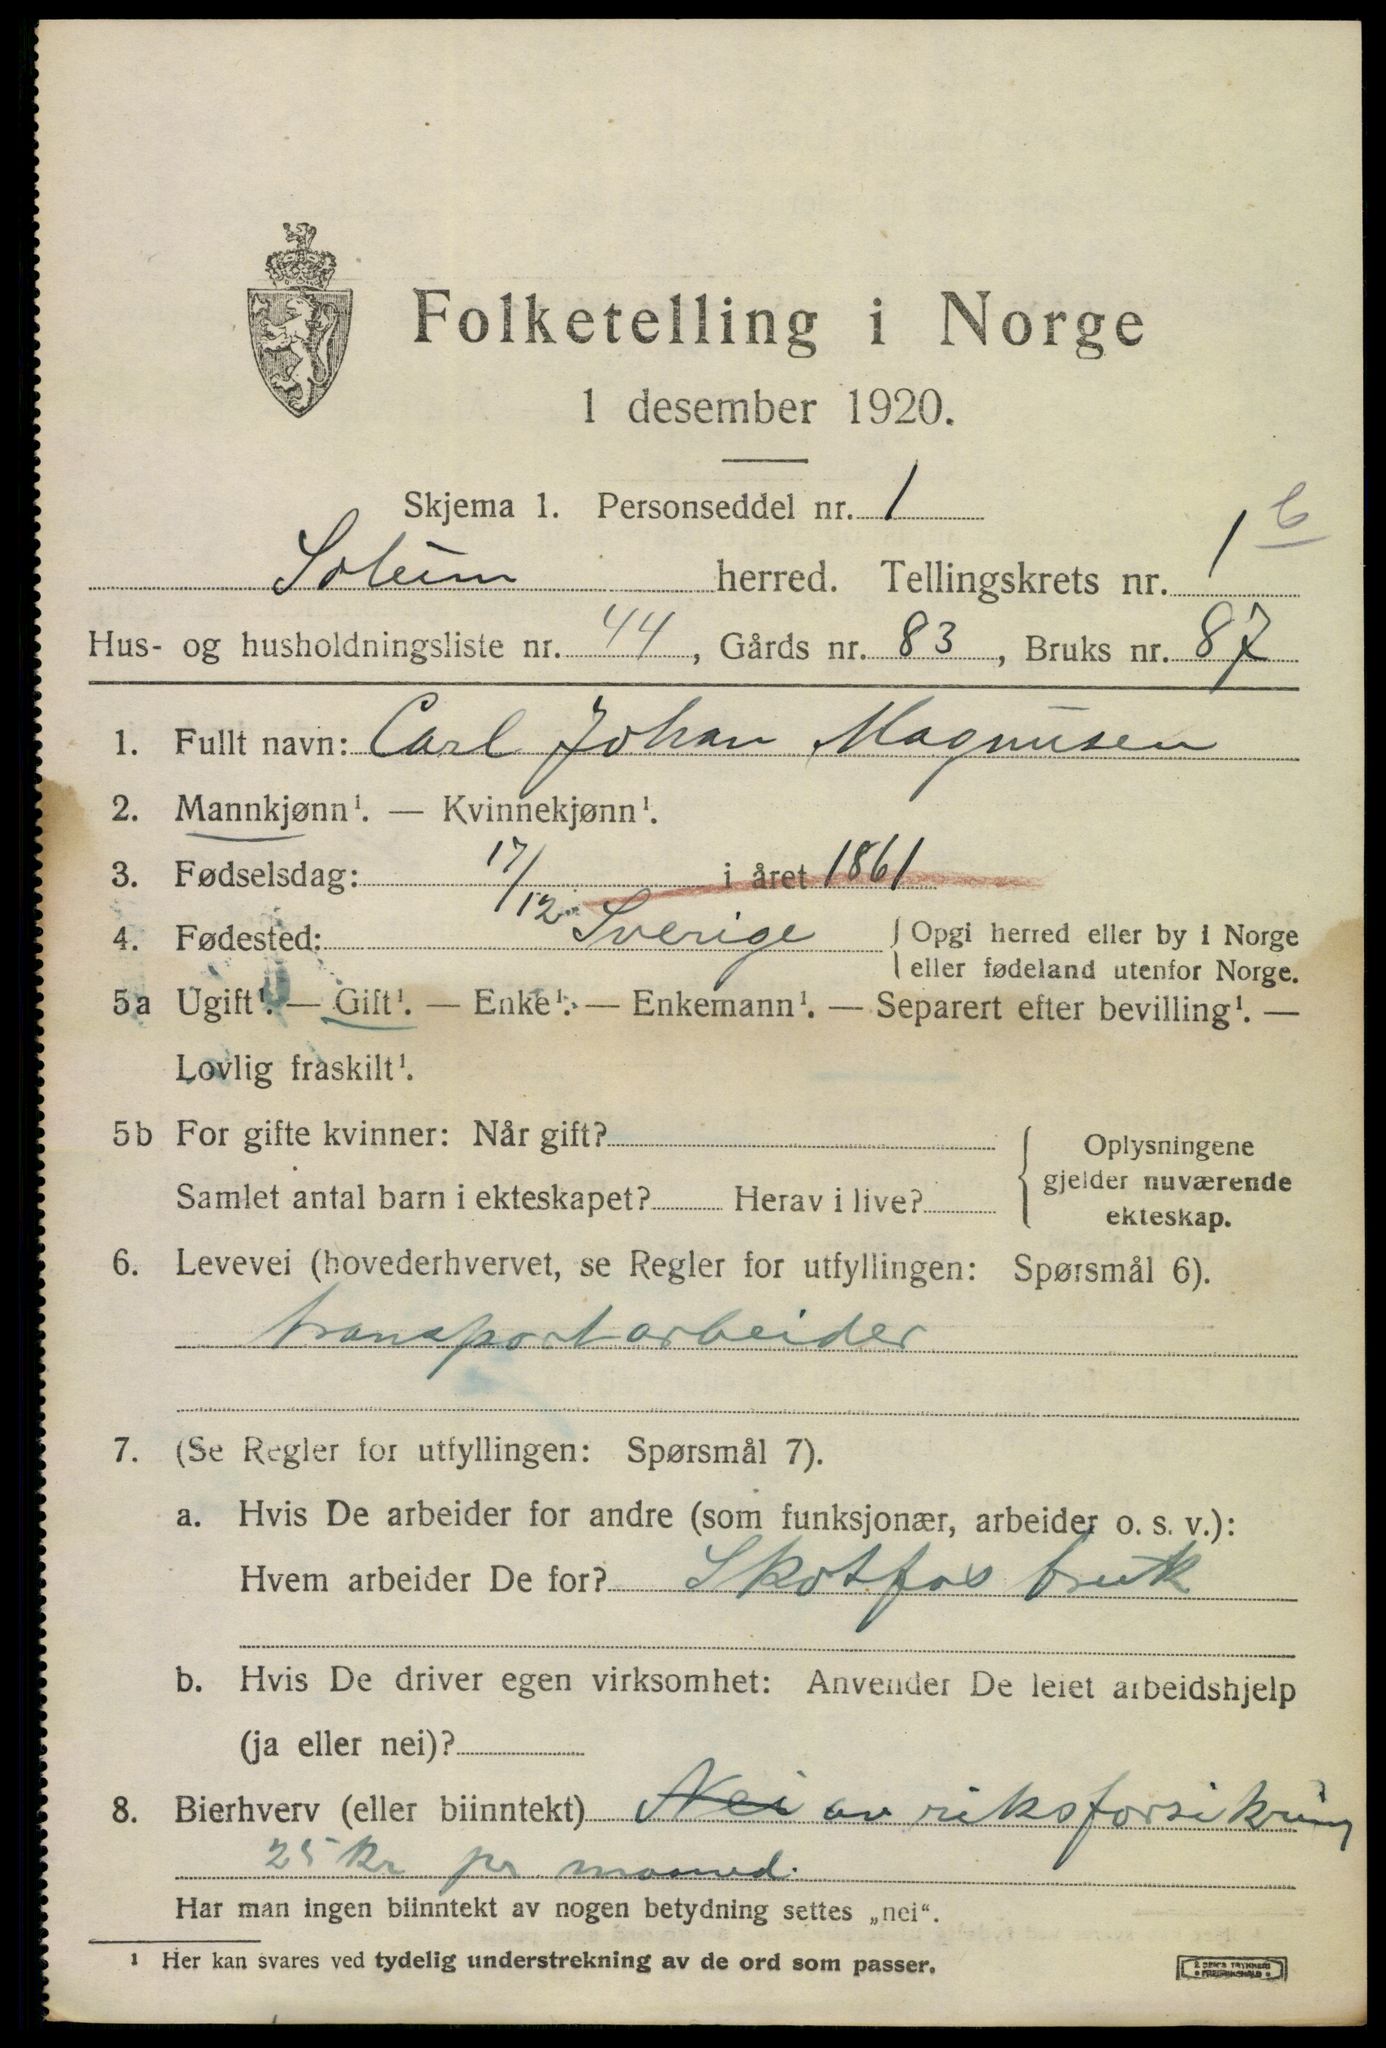 Folketelling i Norge
1 desember 1920.
Skjema 1. Personseddel nr. 1
Soleim herred. Tellingskrets nr. 1 b
Hus- og husholdningsliste nr. 44, Gårds nr. 83, Bruks nr. 87
1. Fullt navn: Carl Johan Magnusen
2. Mannkjønn¹. — Kvinnekjønn¹.
3. Fødselsdag: 17/12 i året 1861
4. Fødested: Sverige { Opgi herred eller by i Norge
eller fødeland utenfor Norge.
5a Ugift¹. — Gift¹. — Enke¹. — Enkemann¹. — Separert efter bevilling¹. —
Lovlig fraskilt¹.
5b For gifte kvinner: Når gift?
Samlet antal barn i ekteskapet? Herav i live?
Oplysningene
gjelder nuværende
ekteskap.
6. Levevei (hovederhvervet, se Regler for utfyllingen: Spørsmål 6).
transportarbeider
7. (Se Regler for utfyllingen: Spørsmål 7).
a. Hvis De arbeider for andre (som funksjonær, arbeider o. s. v.):
Hvem arbeider De for? Skotfos bruk
b. Hvis De driver egen virksomhet: Anvender De leiet arbeidshjelp
(ja eller nei)?
8. Bierhverv (eller biinntekt) Nei av riksforsikring
25 kr pr maaned.
Har man ingen biinntekt av nogen betydning settes „nei“.
¹ Her kan svares ved tydelig understrekning av de ord som passer.